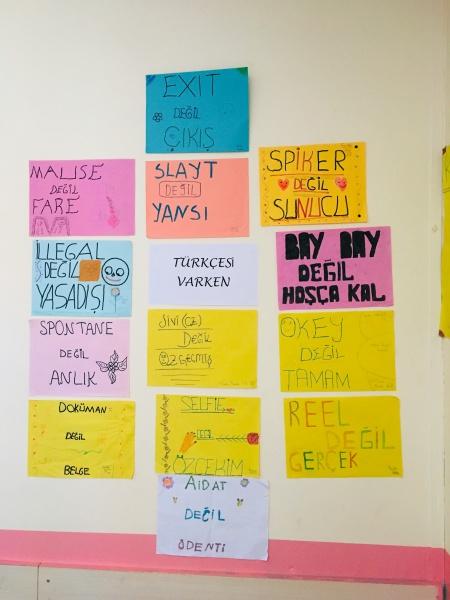 EXIT
DEĞİL
ÇIKIŞ
MAUSE
DEĞİL
FARE
SLAYT
DEĞİL
YANSI
SPİKER
DEĞİL
SUNUCU
İLLEGAL
DEĞİL
YASADIŞI
TÜRKÇESİ
VARKEN
BAY BAY
DEĞİL
HOŞÇA KAL
SPONTANE
DEĞİL
ANLIK
SİVİ(CE)
DEĞİL
ÖZGEÇMİŞ
OKEY
DEĞİL
TAMAM
DOKÜMAN
DEĞİL
BELGE
SELFIE
DEĞİL
ÖZÇEKİM
REEL
DEĞİL
GERÇEK
AİDAT
DEĞİL
ÖDENTİ